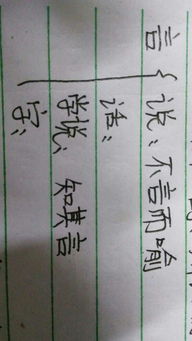 言{说：不言而喻
话：
学说：知其言
字：